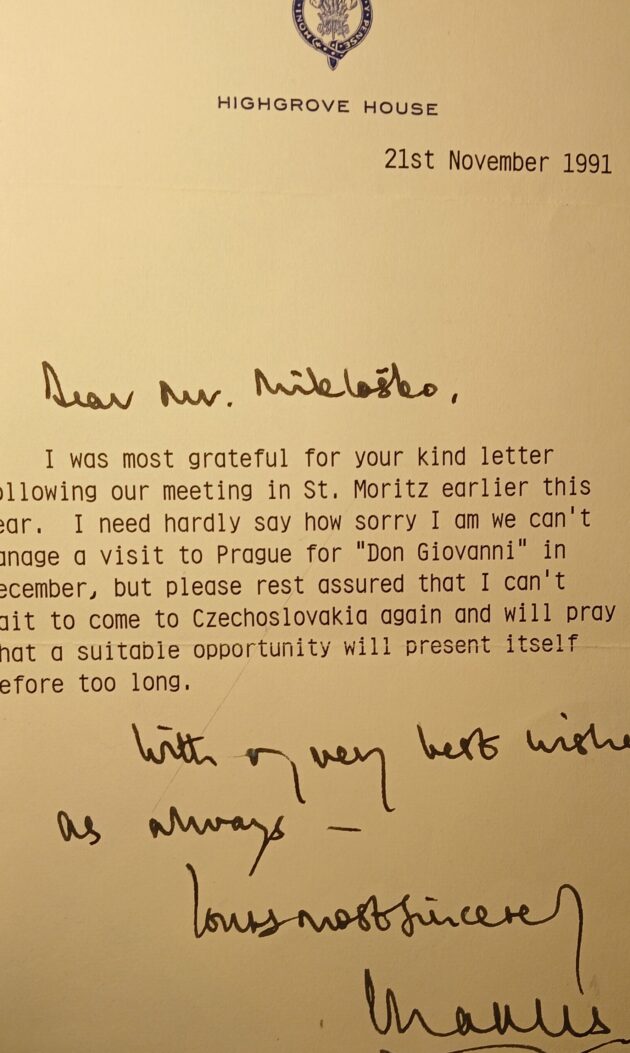 HIGHGROVE HOUSE
21st November 1991
Dear Mr. Mikloško,
I was most grateful for your kind letter
ollowing our meeting in St. Moritz earlier this
ear. I need hardly say how sorry I am we can't
anage a visit to Prague for "Don Giovanni" in
ecember, but please rest assured that I can't
ait to come to Czechoslovakia again and will pray
hat a suitable opportunity will present itself
efore too long.
With my very best wishe
as always –
Yours most sincerely
Charles